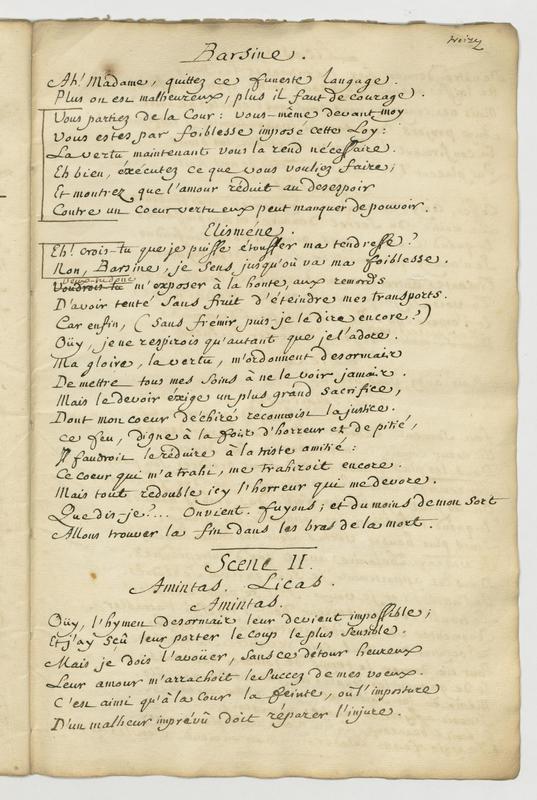 treize
Barsine.
Ah! Madame, quittez ce funeste langage.
Plus on est malheureux, plus il faut de courage.
Vous partiez de la Cour: vous-même devant moy
Vous estes par foiblesse imposé cette Loy:
La vertu maintenant vous la rend nécessaire.
Eh bien, éxécutez ce que vous vouliez faire;
Et montrez que l'amour réduit au desespoir
Contre un Coeur vertueux peut manquer de pouvoir.
Elisméne.
Eh! crois-tu que je puisse étouffer ma tendresse?
Non, Barsine, je sens jusqu'où va ma foiblesse.
veux-tu donc
Voudrois-tu m'exposer à la honte, aux remords
D'avoir tenté sans fruit d'éteindre mes transports.
Car enfin, (sans frémir, puis-je le dire encore?)
Oüy, je ne respirois qu'autant que je l'adore.
Ma gloire, la vertu, m'ordonnent desormais
De mettre tous mes soins à ne le voir jamais.
Mais le devoir éxige un plus grand sacrifice,
Dont mon coeur déchiré reconnoist la justice.
Ce feu, digne à la fois d'horreur et de pitié,
Il faudroit le réduire à la triste amitié:
Ce coeur qui m'a trahi, me trahiroit encore.
Mais tout redouble icy l'horreur qui me devore.
Que dis-je?... On vient. fuyons; et du moins de mon sort
Allons trouver la fin dans les bras de la mort.
Scene II.
Amintas. Licas.
Amintas.
Oüy, l'hymen desormais leur devient impossible;
Et j'ay sçû leur porter le coup le plus sensible.
Mais je dois l'avoüer, sans ce détour heureux
Leur amour m'arrachoit le succez de mes voeux.
C'est ainsi qu'à la Cour la feinte, où l'imposture
D'un malheur imprévû doit réparer l'injure.